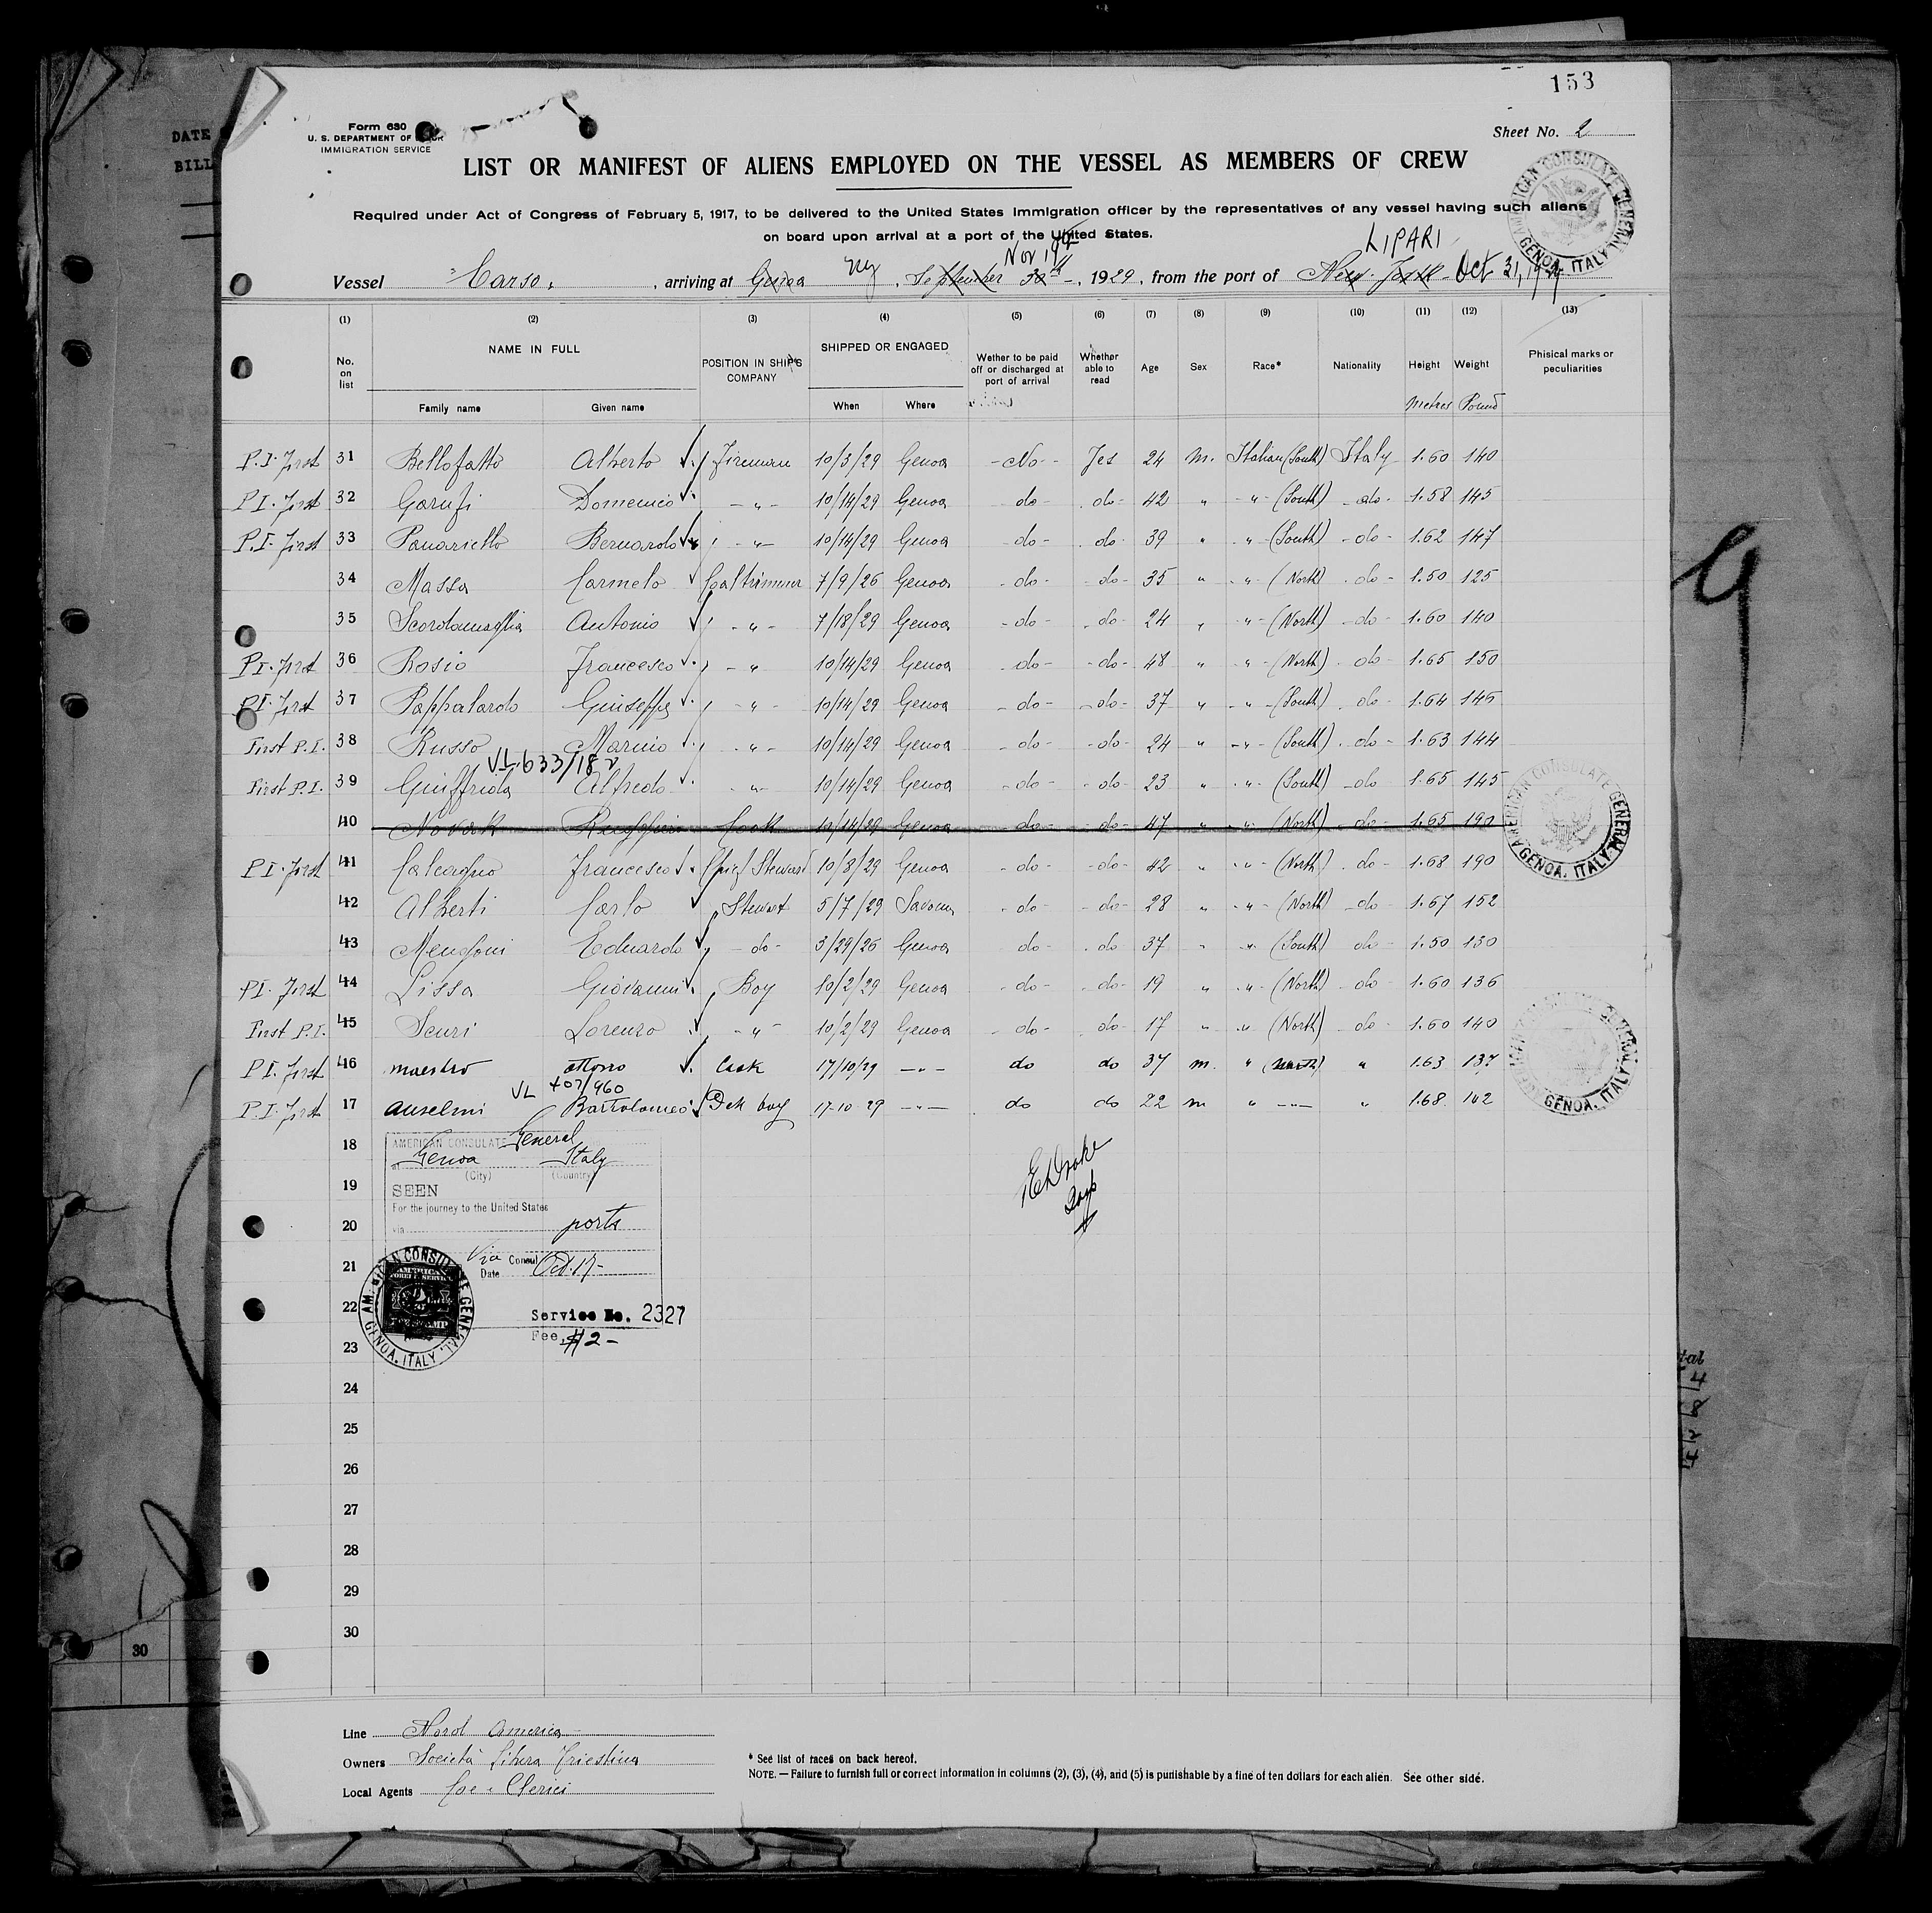 153
Form 630
U. S. DEPARTMENT OF
IMMIGRATION SERVICE
Sheet No. 2
LIST OR MANIFEST OF ALIENS EMPLOYED ON THE VESSEL AS MEMBERS OF CREW
Required under Act of Congress of February 5, 1917, to be delivered to the United States Immigration officer by the representatives of any vessel having such aliens
on board upon arrival at a port of the United States.
AMERICAN CONSULATE GENERAL GENOA, ITALY
Nov 19 LIPARI
Vessel "Carso", arriving at Genoa Ny, September 30th, 1929, from the port of New York Oct 31, 1929
(1) (2) (3) (4) (5) (6) (7) (8) (9) (10) (11) (12) (13)
No. on list NAME IN FULL POSITION IN SHIP'S COMPANY SHIPPED OR ENGAGED Wether to be paid off or discharged at port of arrival Whether able to read Age Sex Race* Nationality Height Weight Phisical marks or peculiarities
Family name Given name When Where Metres Pound
P.I. First 31 Bellofatto Alberto Fireman 10/3/29 Genoa - No - Yes 24 M. Italian (South) Italy 1.60 140
P.I. First 32 Garufi Domenico - " - 10/14/29 Genoa do - do - 42 " - " - (South) - do - 1.58 145
P.I. First 33 Panariello Bernardo - " - 10/14/29 Genoa - do - do 39 " " - (South) - do - 1.62 147
34 Massa Carmelo Coaltrimmer 7/9/26 Genoa - do - - do - 35 " " - (North) - do - 1.50 125
35 Scordamaglia Antonio - " - 7/18/29 Genoa - do - - do - 24 " " - (North) - do - 1.60 140
P.I. First 36 Rosio Francesco - " 10/14/29 Genoa - do - - do - 48 " " - (North) - do - 1.65 150
P.I. First 37 Pappalardo Giuseppe - " - 10/14/29 Genoa - do - - do - 37 " - " - (South) - do - 1.64 146
First P.I. 38 Russo Marcio - " - 10/14/29 Genoa - do - - do - 24 " - " - (South) - do - 1.63 144
VL 633/18
First P.I. 39 Guiffrida Alfredo - " - 10/14/29 Genoa - do - - do - 23 " - " - (South) - do 1.65 145
40 Novack Ruggiero Cook 10/14/29 Genoa - do - - do - 47 " " (North) - do - 1.65 190
P.I. First 41 Calcagno Francesco Chief Steward 10/8/29 Genoa - do - - do - 42 " - " - (North) - do - 1.68 190
42 Alberti Carlo Stewart 5/7/29 Savona - do - - do - 28 " - " - (North) - do - 1.67 152
43 Mengoni Eduardo - do - 3/29/26 Genoa do - do 37 " " (South) do - 1.50 130
P.I. First 44 Lissa Giovanni Boy 10/2/29 Genoa - do - - do - 19 " - " - (North) - do - 1.60 136
First P.I. 45 Scuri Lorenzo - " - 10/2/29 Genoa - do - do - 17 " " (North) - do - 1.60 140
P.I. First 46 maestro Cook 17/10/29 - " - do do 37 m. " " 1.63 137
VL 407/960
P.I. First 17 Anselmi Bartolomeo Dek boy 17-10-29 - " - do do 22 m " - " - " 1.68 142
18
19
20
21
22
23
24
25
26
27
28
29
30
AMERICAN CONSULATE General
Genoa Italy
(City) (Country)
SEEN
For the journey to the United States
via ports
Via Consul
Date Oct. 17-
Service No. 2327
Fee, $2-
AMERICAN CONSULATE GENERAL GENOA, ITALY
E Drake
AMERICAN CONSULATE GENERAL GENOA, ITALY
GENOA, ITALY
Line Nord America
Owners Società Libera Triestina
Local Agents Coe & Clerici
* See list of races on back hereof.
NOTE. — Failure to furnish full or correct information in columns (2), (3), (4), and (5) is punishable by a fine of ten dollars for each alien. See other side.
DATE
BILL
30